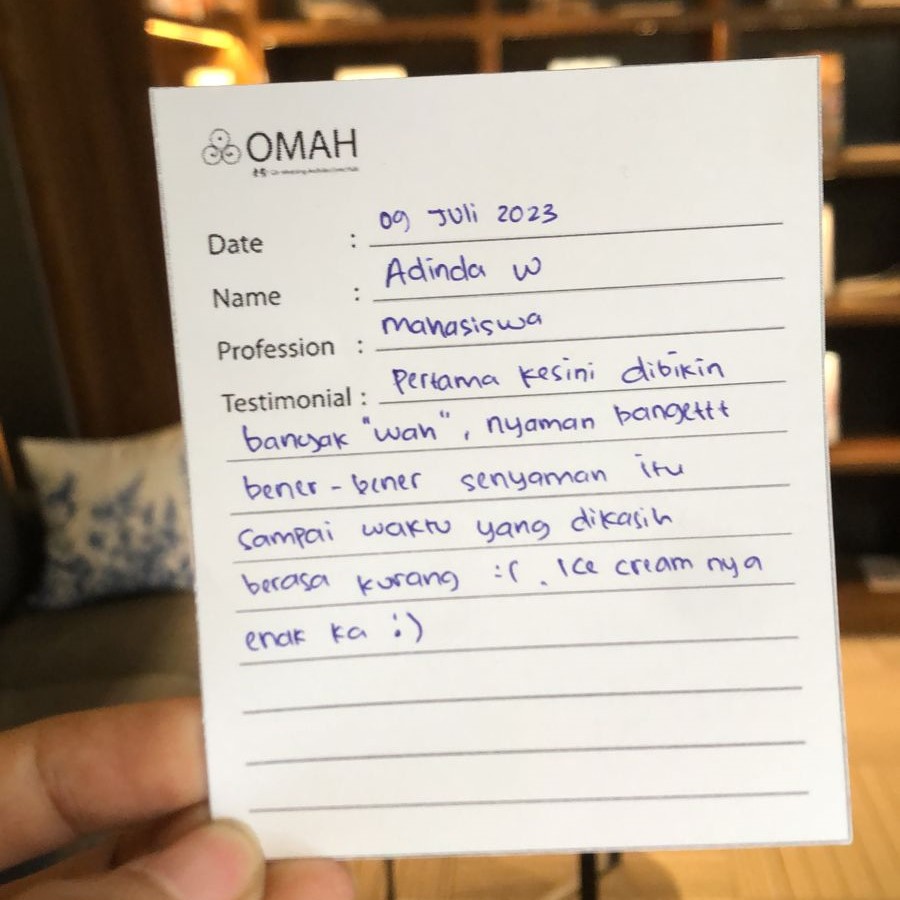 OMAH
Date : 09 Juli 2023
Name : Adinda W
Profession : mahasiswa
Testimonial : Pertama kesini dibikin
banyak "wah", nyaman bangettt
bener-bener senyaman itu
sampai waktu yang dikasih
berasa kurang :( . Ice cream nya
enak ka :)